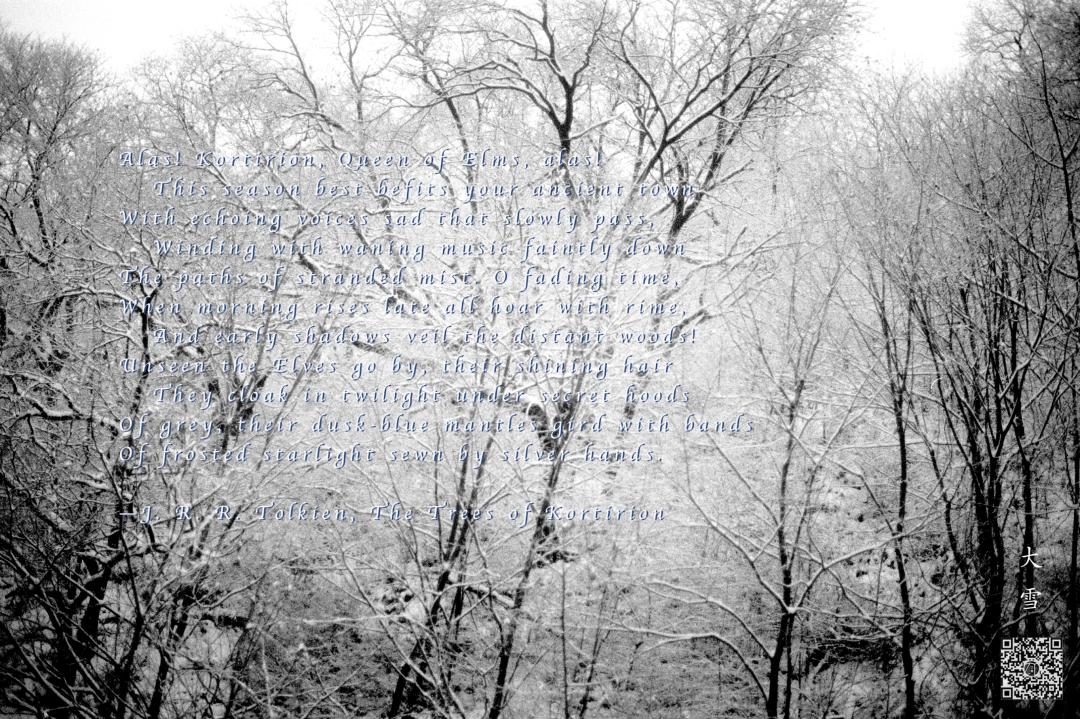 Alas! Kortirion, Queen of Elms, alas!
This season best befits your ancient town
With echoing voices sad that slowly pass,
Winding with waning music faintly down
The paths of stranded mist. O fading time,
When morning rises late all hoar with rime,
And early shadows veil the distant woods!
Unseen the Elves go by, their shining hair
They cloak in twilight under secret hoods
Of grey, their dusk-blue mantles gird with bands
Of frosted starlight sewn by silver hands.
—J. R. R. Tolkien, The Trees of Kortirion
大雪